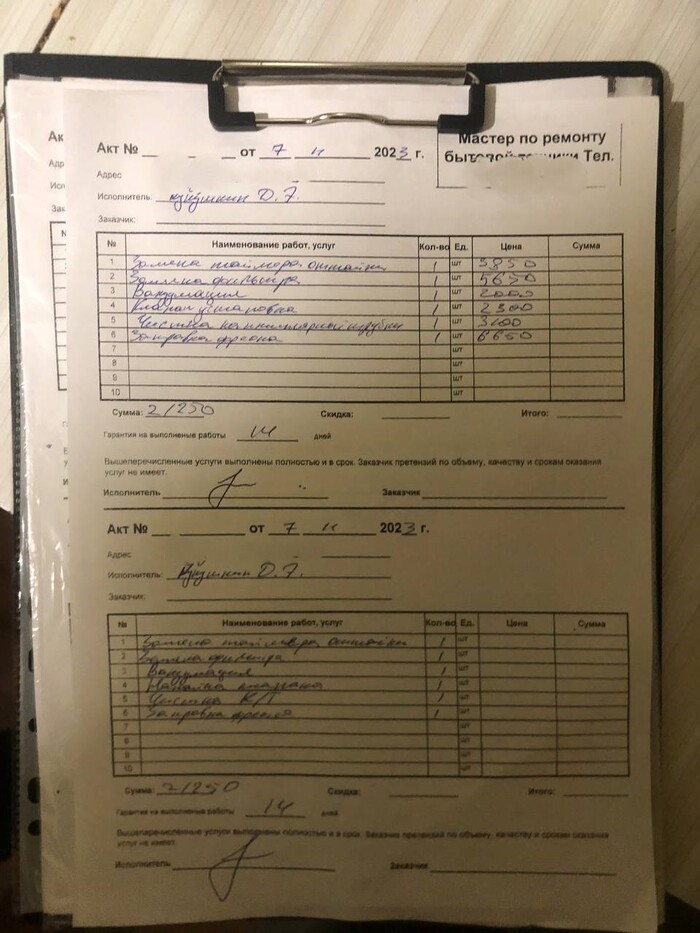 Ак
Адр
Исп
Зак
Акт № __ - __ от 7 11 2023 г.
Мастер по ремонту
бытовой техники Тел.
Адрес
Исполнитель: Д. Г.
Заказчик:
№ Наименование работ, услуг Кол-во Ед. Цена Сумма
1 Замена таймера оттайки 1 шт 3850
2 Замена фильтра 1 шт 5650
3 Вакумация 1 шт 2000
4 Клапан установка 1 шт 2300
5 Чистка капиллярной трубки 1 шт
6 Заправка фреона 1 шт 6650
7 шт
8 шт
9 шт
10 шт
Сумма: 21250 Скидка: Итого:
Гарантия на выполненые работы 14 дней
Вышеперечисленные услуги выполнены полностью и в срок. Заказчик претензий по объему, качеству и срокам оказания
услуг не имеет.
Исполнитель Заказчик
Акт № __ от 7 11 2023 г.
Адрес
Исполнитель: Д. Г.
Заказчик:
№ Наименование работ, услуг Кол-во Ед. Цена Сумма
1 Замена таймера оттайки 1 шт
2 Замена фильтра 1 шт
3 Вакумация 1 шт
4 клапана 1 шт
5 Чистка К/Т 1 шт
6 Заправка фреона 1 шт
7 шт
8 шт
9 шт
10 шт
Сумма: 21250 Скидка: Итого:
Гарантия на выполненые работы 14 дней
Вышеперечисленные услуги выполнены полностью и в срок. Заказчик претензий по объему, качеству и срокам оказания
услуг не имеет.
Исполнитель Заказчик